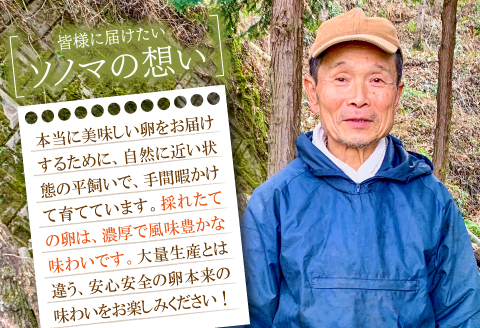 皆様に届けたい
ソノマの想い
本当に美味しい卵をお届け
するために、自然に近い状
態の平飼いで、手間暇かけ
て育てています。採れたて
の卵は、濃厚で風味豊かな
味わいです。大量生産とは
違う、安心安全の卵本来の
味わいをお楽しみください！